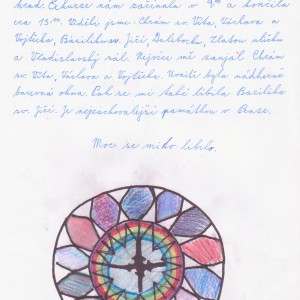 hrad. Exkurze nám začínala v 9⁰⁰ a končila
cca 13:00. Viděli jsme: Chrám sv. Víta, Václava a
Vojtěcha, Baziliku sv. Jiří, Daliborku, Zlatou uličku
a Vladislavský sál. Nejvíce mě zaujal Chrám
sv. Víta, Václava a Vojtěcha. Uvnitř byla nádherná
barevná okna. Pak se mi také líbila Bazilika
sv. Jiří. Je nejzachovalejší památkou v Praze.
Moc se mi to líbilo.